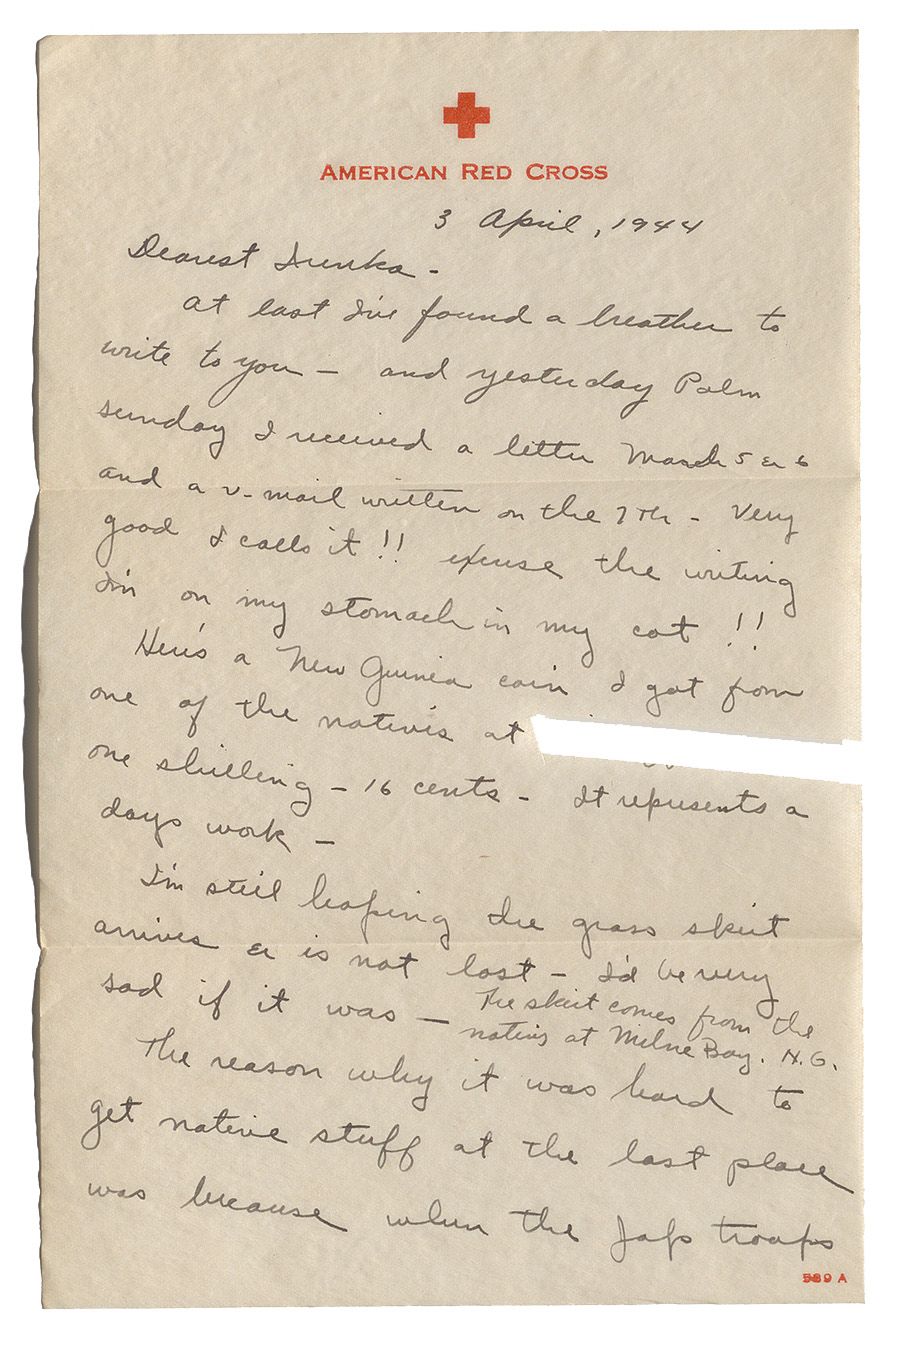 AMERICAN RED CROSS
3 April, 1944
Dearest Irenka -
At last I've found a breather to
write to you - and yesterday Palm
Sunday I received a letter March 5 & 6
and a v-mail written on the 7th - Very
good I calls it!! excuse the writing
I'm on my stomach in my cot !!
Here's a New Guinea coin I got from
one of the natives at
one shilling - 16 cents - It represents a
days work -
I'm still hoping the grass skirt
arrives & is not lost - I'd be very
sad if it was - The skirt comes from the
natives at Milne Bay. N.G.
The reason why it was hard to
get native stuff at the last place
was because when the Japs troops
589 A